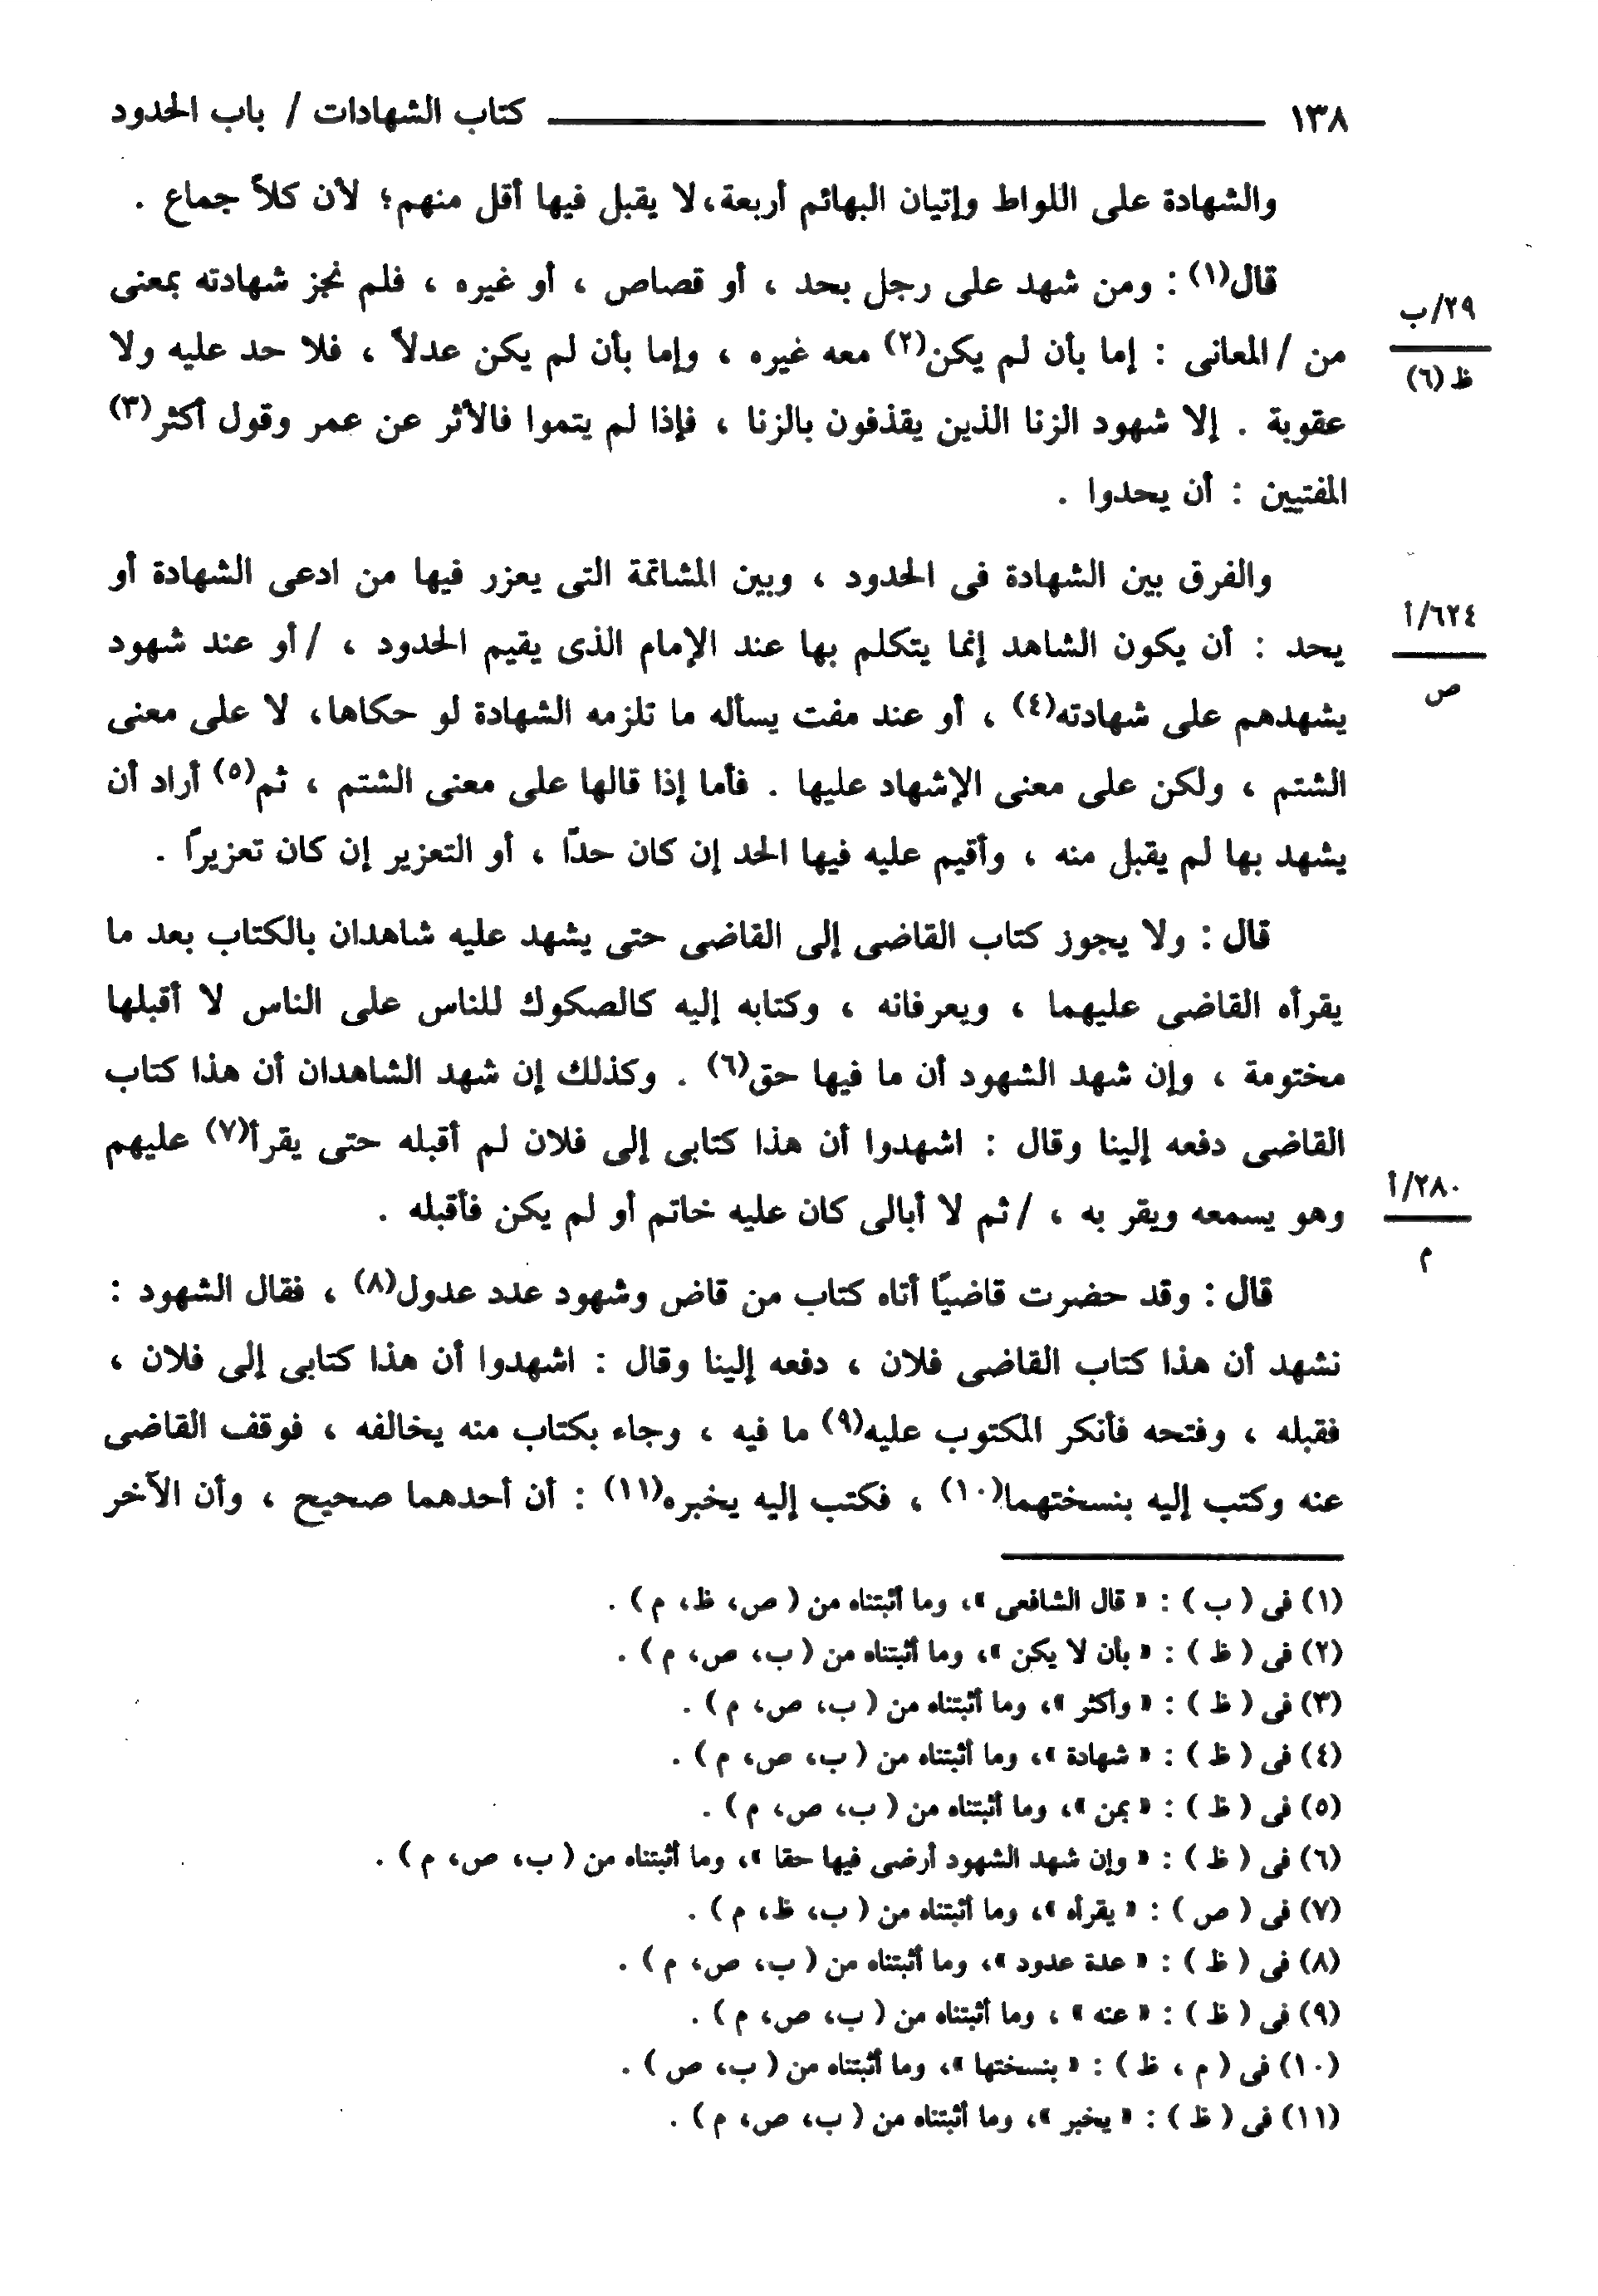 ١٣٨ كتاب الشهادات / باب الحدود
والشهادة على اللواط وإتيان البهائم أربعة، لا يقبل فيها أقل منهم؛ لأن كلاً جماع .
قال(١) : ومن شهد على رجل بحد ، أو قصاص ، أو غيره ، فلم نجز شهادته بمعنى
٢٩/ب
ظ (٦)
من / المعانى : إما بأن لم يكن(٢) معه غيره ، وإما بأن لم يكن عدلاً ، فلا حد عليه ولا
عقوبة . إلا شهود الزنا الذين يقذفون بالزنا ، فإذا لم يتموا فالأثر عن عمر وقول أكثر(٣)
المفتيين : أن يحدوا .
والفرق بين الشهادة فى الحدود ، وبين المشاتمة التى يعزر فيها من ادعى الشهادة أو
٦٢٤/أ
ص
يحد : أن يكون الشاهد إنما يتكلم بها عند الإمام الذى يقيم الحدود ، / أو عند شهود
يشهدهم على شهادته(٤) ، أو عند مفت يسأله ما تلزمه الشهادة لو حكاها، لا على معنى
الشتم ، ولكن على معنى الإشهاد عليها . فأما إذا قالها على معنى الشتم ، ثم(٥) أراد أن
يشهد بها لم يقبل منه ، وأقيم عليه فيها الحد إن كان حدًا ، أو التعزير إن كان تعزيرًا .
قال : ولا يجوز كتاب القاضى إلى القاضى حتى يشهد عليه شاهدان بالكتاب بعد ما
يقرأه القاضى عليهما ، ويعرفانه ، وكتابه إليه كالصكوك للناس على الناس لا أقبلها
مختومة ، وإن شهد الشهود أن ما فيها حق(٦) . وكذلك إن شهد الشاهدان أن هذا كتاب
القاضى دفعه إلينا وقال : اشهدوا أن هذا كتابى إلى فلان لم أقبله حتى يقرأ(٧) عليهم
٢٨٠/أ
م
وهو يسمعه ويقر به ، / ثم لا أبالى كان عليه خاتم أو لم يكن فأقبله .
قال : وقد حضرت قاضيًا أتاه كتاب من قاض وشهود عدد عدول(٨) ، فقال الشهود :
نشهد أن هذا كتاب القاضى فلان ، دفعه إلينا وقال : اشهدوا أن هذا كتابى إلى فلان ،
فقبله ، وفتحه فأنكر المكتوب عليه(٩) ما فيه ، وجاء بكتاب منه يخالفه ، فوقف القاضى
عنه وكتب إليه بنسختهما(١٠) ، فكتب إليه يخبره(١١) : أن أحدهما صحيح ، وأن الآخر
(١) فى ( ب ) : « قال الشافعى »، وما أثبتناه من ( ص، ظ، م ) .
(٢) فى ( ظ ) : « بأن لا يكن »، وما أثبتناه من ( ب، ص، م ) .
(٣) فى ( ظ ) : « وأكثر »، وما أثبتناه من ( ب، ص، م ) .
(٤) فى ( ظ ) : « شهادة »، وما أثبتناه من ( ب، ص، م ) .
(٥) فى ( ظ ) : « بمن »، وما أثبتناه من ( ب، ص، م ) .
(٦) فى ( ظ ) : « وإن شهد الشهود أرضى فيها حقا »، وما أثبتناه من ( ب، ص، م ) .
(٧) فى ( ص ) : « يقرأه »، وما أثبتناه من ( ب، ظ، م ) .
(٨) فى ( ظ ) : « عدة عدود »، وما أثبتناه من ( ب، ص، م ) .
(٩) فى ( ظ ) : « عنه » ، وما أثبتناه من ( ب، ص، م ) .
(١٠) فى ( م ، ظ ) : « بنسختها »، وما أثبتناه من ( ب، ص ) .
(١١) فى ( ظ ) : « يخبر »، وما أثبتناه من ( ب، ص، م ) .